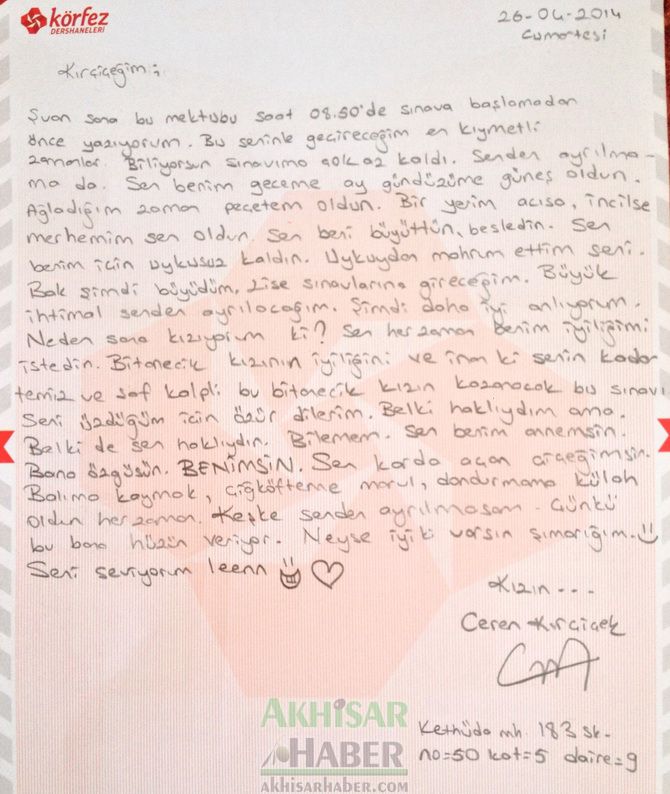 körfez
DERSHANELERİ
26-04-2014
Cumartesi
Kırçiçeğim ;
Şuan sana bu mektubu saat 08.50'de sınava başlamadan
önce yazıyorum. Bu seninle geçireceğim en kıymetli
zamanlar. Biliyorsun sınavıma çok az kaldı. Senden ayrılma-
ma da. Sen benim geceme ay gündüzüme güneş oldun.
Ağladığım zaman peçetem oldun. Bir yerim acısa, incilse
merhemim sen oldun. Sen beni büyüttün, besledin. Sen
benim için uykusuz kaldın. Uykuydan mahrum ettim seni.
Bak şimdi büyüdüm. Lise sınavlarına gireceğim. Büyük
ihtimal senden ayrılacağım. Şimdi daha iyi anlıyorum.
Neden sana kızıyorum ki? Sen her zaman benim iyiliğimi
istedin. Bitanecik kızının iyiliğini ve inan ki senin kadar
temiz ve saf kalpli bu bitanecik kızın kazanacak bu sınavı
Seni üzdüğüm için özür dilerim. Belki haklıydım ama.
Belki de sen haklıydın. Bilemem. Sen benim annemsin.
Bana özgüsün. BENİMSİN. Sen karda açan çiçeğimsin.
Balıma kaymak, çiğköfteme marul, dondurmama külah
oldun her zaman. Keşke senden ayrılmasam. Çünkü
bu bana hüzün veriyor. Neyse iyiki varsın şımarığım.
Seni seviyorum leenn
Kızın ...
Ceren Kırçiçek
Kethüda mh. 183 sk.
no=50 kat=5 daire=9
AKHİSAR
HABER
akhisarhaber.com